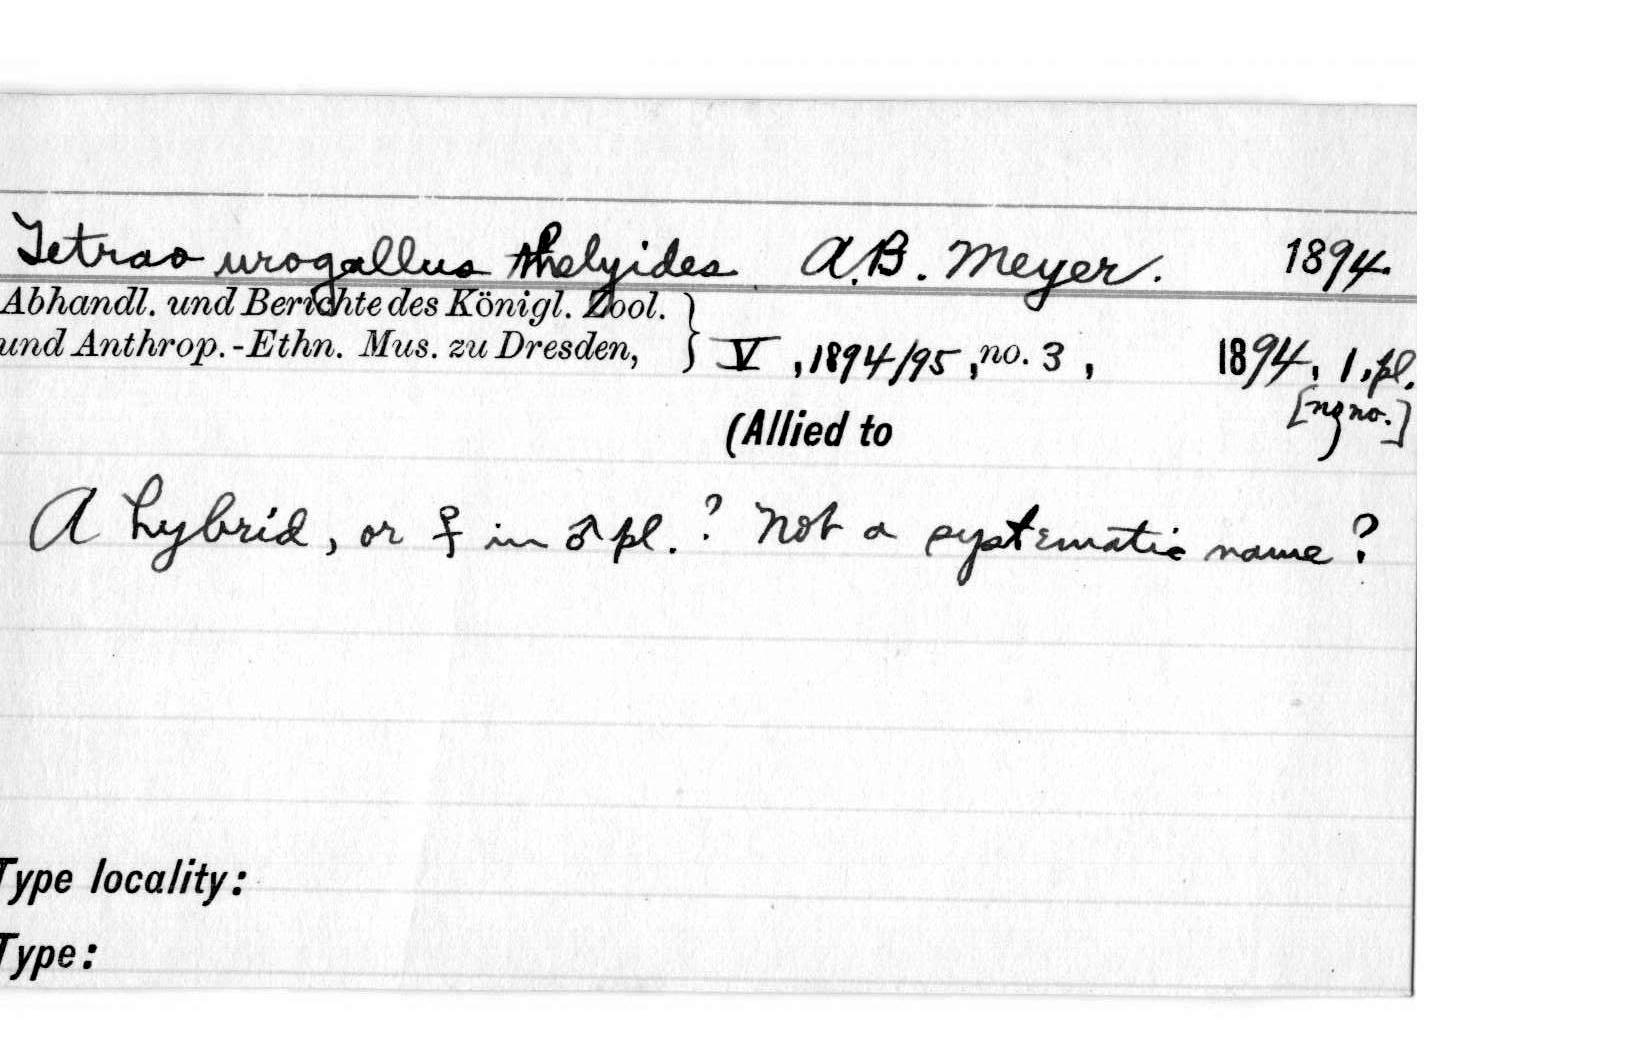 Tetrao urogallus thelyides A.B. Meyer. 1894.
Abhandl. und Berichte des Königl. Zool.
und Anthrop.-Ethn. Mus. zu Dresden, } V, 1894/95, no. 3, 1894, 1, pl.
[no.]
(Allied to
A hybrid, or ♀ in ♂ pl.? Not a systematic name?
Type locality:
Type: